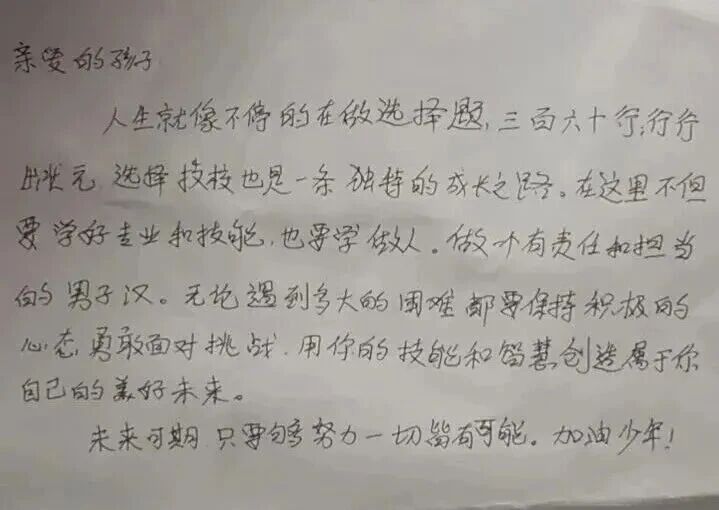 亲爱的孩子
人生就像不停的在做选择题,三百六十行,行行
出状元,选择技校也是一条独特的成长之路。在这里不但
要学好专业和技能,也要学做人。做个有责任和担当
的男子汉。无论遇到多大的困难都要保持积极的
心态,勇敢面对挑战,用你的技能和智慧创造属于你
自己的美好未来。
未来可期,只要够努力一切皆有可能。加油少年!